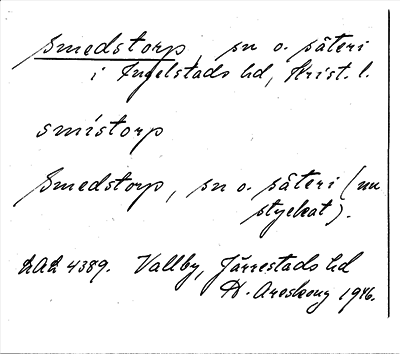 Smedstorp, sn o. säteri
i Ingelstads hd, Krist. l.
smístorp
Smedstorp, sn o. säteri (nu
styckat).
LAL 4389. Vallby, Järrestads hd
H. Areskoug 1946.